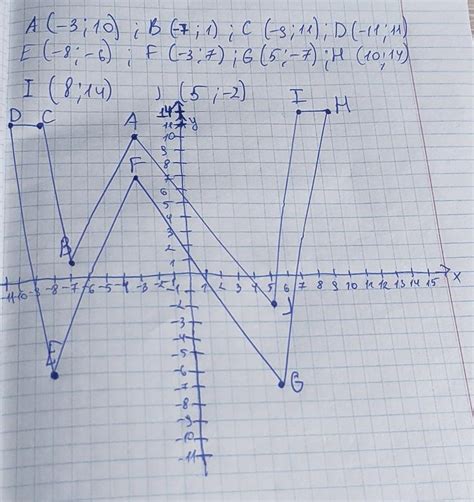 A (-3;10) ; B (-7;1) ; C (-9;11) ; D (-11;11)
E (-8;-6) ; F (-3;7) ; G (5;-7) ; H (10;14)
I (8;14) J (5;-2)
D C A I H
14
11 y
10
9
8
F
7
6
5
4
3
B
2
1
-11 -10 -9 -8 -7 -6 -5 -4 -3 -1 1 2 3 4 5 6 7 8 9 10 11 12 13 14 15 x
J
-2
-3
-4
E
-5
-6
-7 G
-8
-9
-10
-11